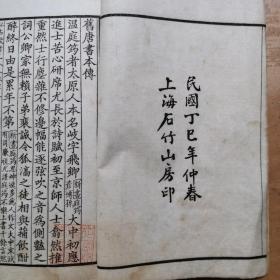 民國丁巳年仲春
上海石竹山房印
舊唐書本傳
溫庭筠者太原人本名岐字飛卿
大中初應
進士苦心研席尤長於詩賦初至京師人士翕然推
重然士行塵雜不修邊幅能逐弦吹之音為側豔之
詞公卿家無賴子弟裴諴令狐滈之徒相與蒱飲酣
醉終日由是累年不第